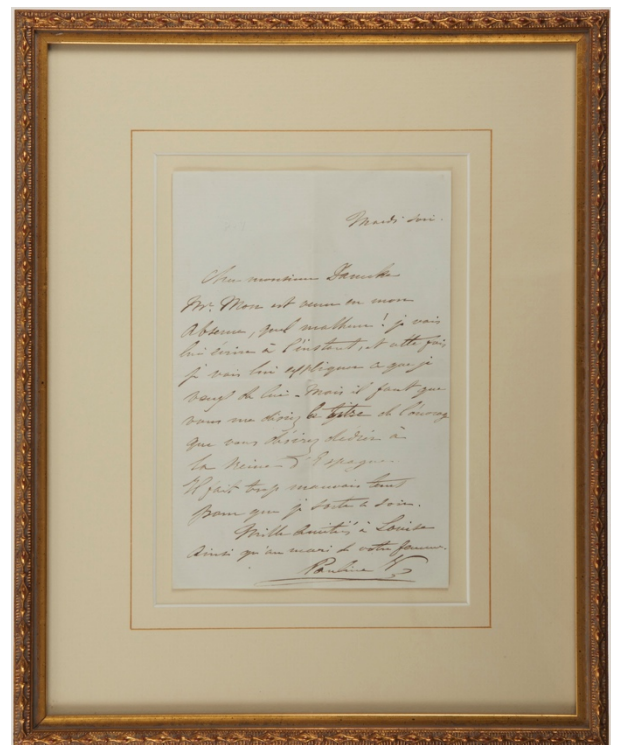 Mardi soir.
Cher monsieur Damcke
Mr. Mon est venu en mon
absence, quel malheur! je vais
lui écrire à l'instant, et cette fois
je vais lui expliquer ce que je
veux de lui - Mais il faut que
vous me disiez le titre de l'ouvrage
que vous désirez dédier à
la Reine d'Espagne.
Il fait trop mauvais temps
pour que je sorte ce soir.
Mille amitiés à Louise
ainsi qu'au mari de votre femme.
Pauline V.